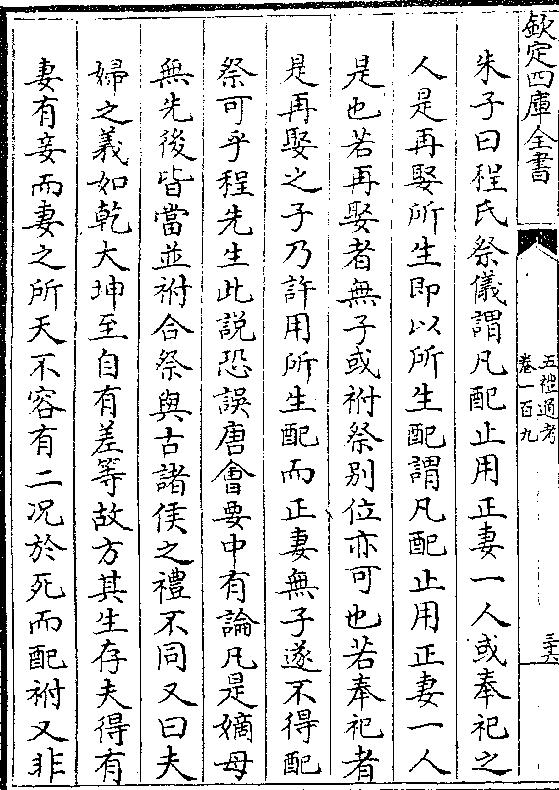 欽定四庫全書
五禮通考
卷一百九
三六
朱子曰程氏祭儀謂凡配止用正妻一人或奉祀之
人是再娶所生即以所生配謂凡配止用正妻一人
是也若再娶者無子或祔祭别位亦可也若奉祀者
是再娶之子乃許用所生配而正妻無子遂不得配
祭可乎程先生此説恐誤唐會要中有論凡是嫡母
無先後皆當並祔合祭與古諸侯之禮不同又曰夫
婦之義如乾大坤至自有差等故方其生存夫得有
妻有妾而妻之所天不容有二况於死而配祔又非